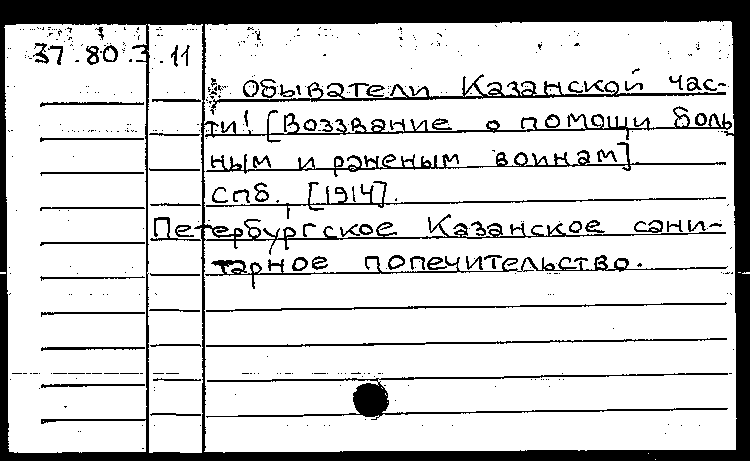 37.80.3.11
Обыватели Казанской час-
ти! [Воззвание о помощи боль
ным и раненым воинам].
СПб., [1914].
Петербургское Казанское сани-
тарное попечительство.